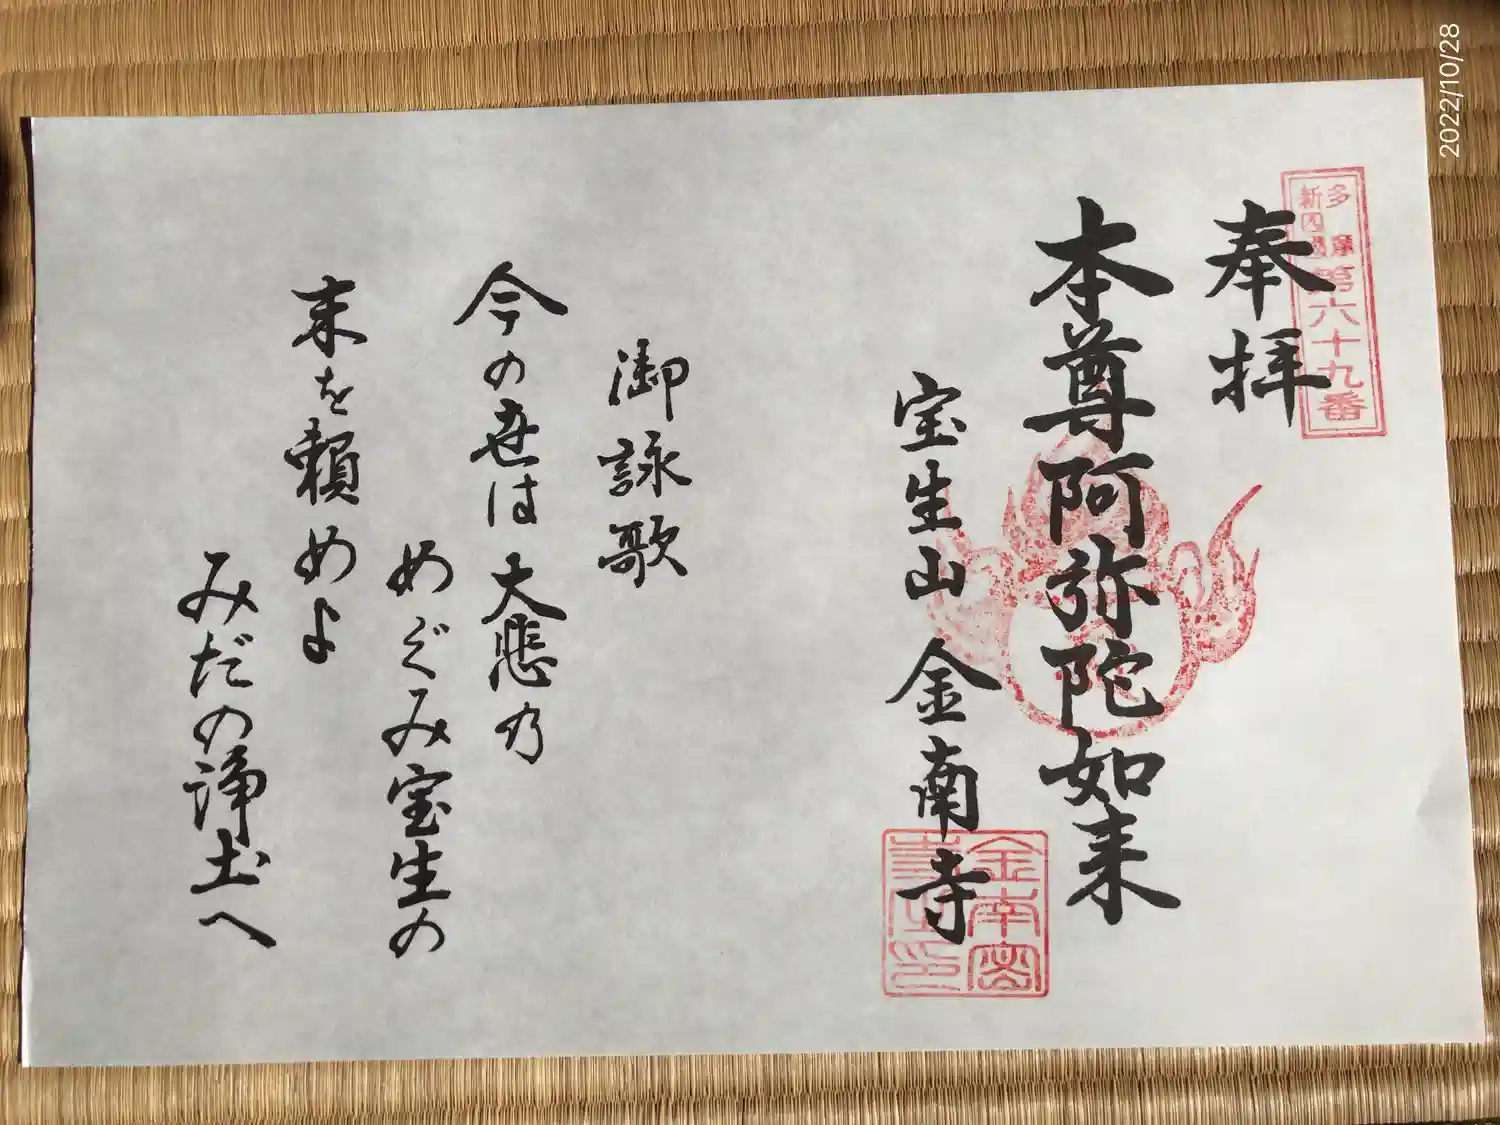 多摩
新四國
第六十九番
奉拝
本尊阿弥陀如来
宝生山 金南寺
御詠歌
今の世は大悲の
めぐみ宝生の
末を頼めよ
みだの浄土へ
2022/10/28